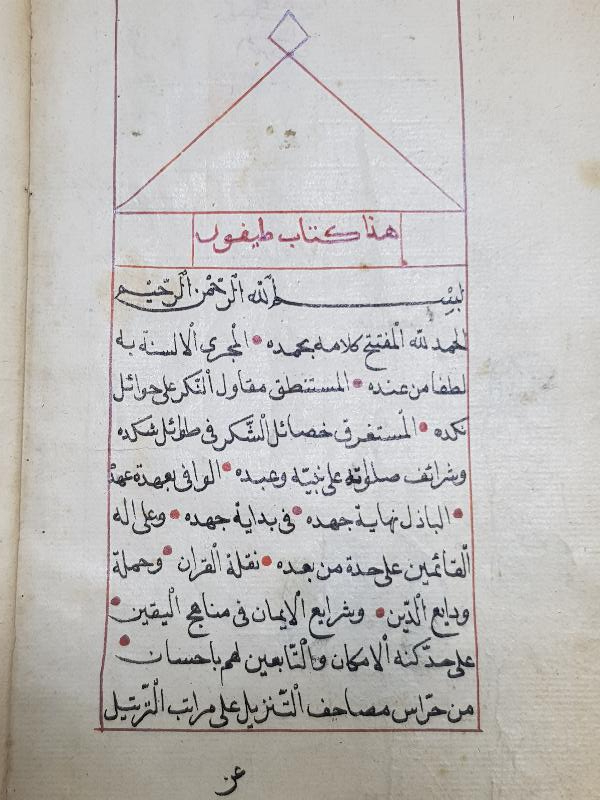 هذا كتاب طيفور
بسم الله الرحمن الرحيم
الحمد لله المفتتح كلامه بحمده • المجرى الالسنة به
لطفا من عنده • المستنطق مقاول التكر على جوائل
نكده • المستغرق خصائل الشكر فى طوائل شكده
وشرائف صلواته على نبيه وعبده • الوافى بعهدة عهده
• الباذل نهاية جهده • فى بداية جهده • وعلى اله
القائمين على حدة من بعده • نقلة القران • وحملة
ودايع الدين • وشرايع الايمان فى مناهج اليقين •
على حد كنه الامكان والتابعين لهم باحسان •
من حراس مصاحف التنزيل على مراتب الترتيل
عن